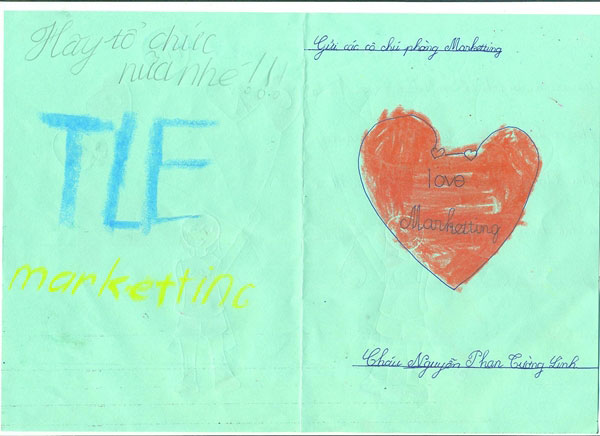 Hãy tổ chức
nữa nhé !!!
TLE
marketting
Gửi các cô chú phòng Marketting
love
Marketting
Cháu Nguyễn Phan Tường Linh